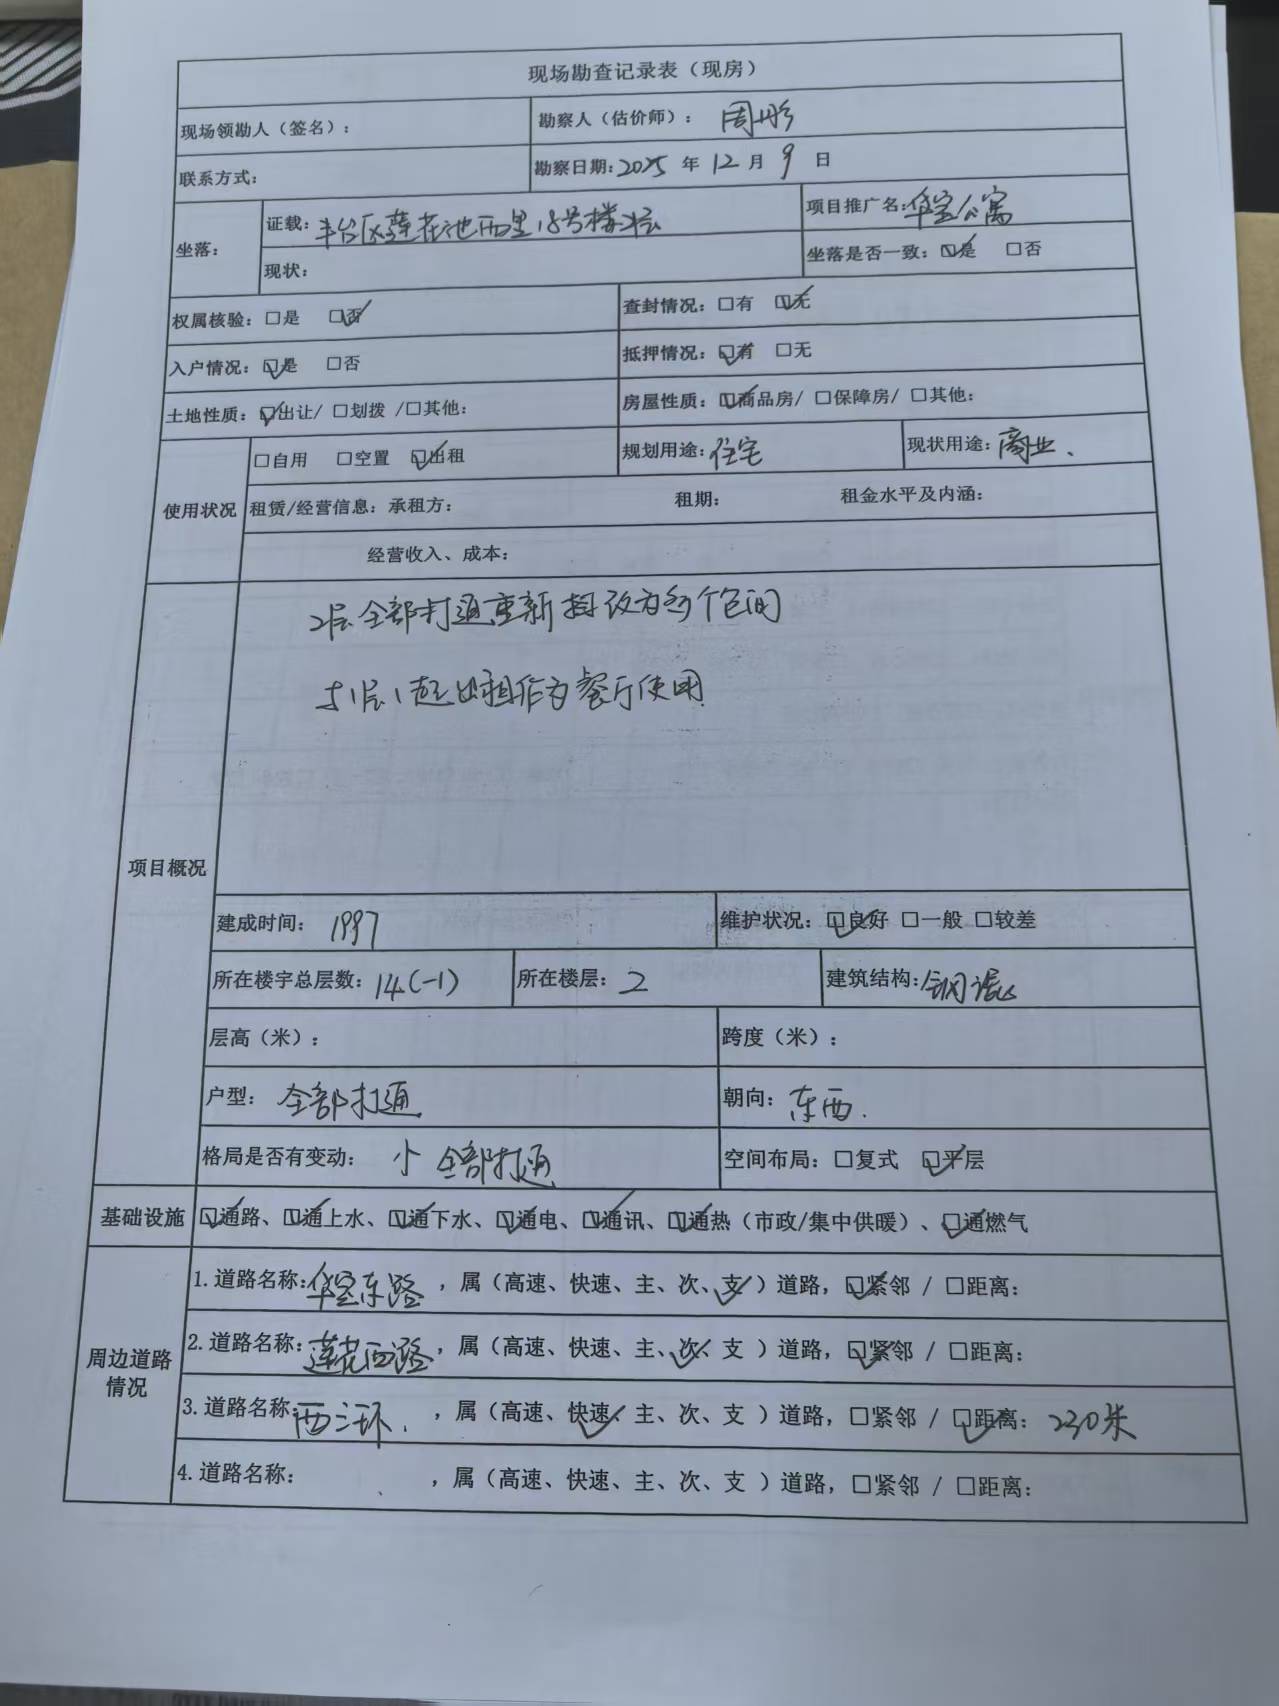 现场勘查记录表（现房）
现场领勘人（签名）： 勘察人（估价师）： 周彤
联系方式： 勘察日期：2025 年 12 月 9 日
坐落： 证载：丰台区莲花池西里18号楼2层 项目推广名：华宝公寓
现状： 坐落是否一致：☑是 □否
权属核验：□是 ☑否 查封情况：□有 ☑无
入户情况：☑是 □否 抵押情况：☑有 □无
土地性质：☑出让/ □划拨 /□其他： 房屋性质：☑商品房/ □保障房/ □其他：
使用状况 □自用 □空置 ☑出租 规划用途：住宅 现状用途：商业、
租赁/经营信息：承租方： 租期： 租金水平及内涵：
经营收入、成本：
项目概况
2层全部打通重新 改为多个包间
与1层1起出租作为餐厅使用
建成时间： 1997 维护状况：☑良好 □一般 □较差
所在楼宇总层数：14(-1) 所在楼层：2 建筑结构：钢混
层高（米）： 跨度（米）：
户型： 全部打通 朝向：东西.
格局是否有变动： 全部打通 空间布局：□复式 ☑平层
基础设施 ☑通路、☑通上水、☑通下水、☑通电、☑通讯、☑通热（市政/集中供暖）、☑通燃气
周边道路情况
1.道路名称：华宝东路 ，属（高速、快速、主、次、支✓）道路，☑紧邻 / □距离：
2.道路名称：莲花西路 ，属（高速、快速、主、次✓、支 ）道路，☑紧邻 / □距离：
3.道路名称：西三环. ，属（高速、快速✓、主、次、支 ）道路，□紧邻 / ☑距离：230米
4.道路名称： ，属（高速、快速、主、次、支 ）道路，□紧邻 / □距离：